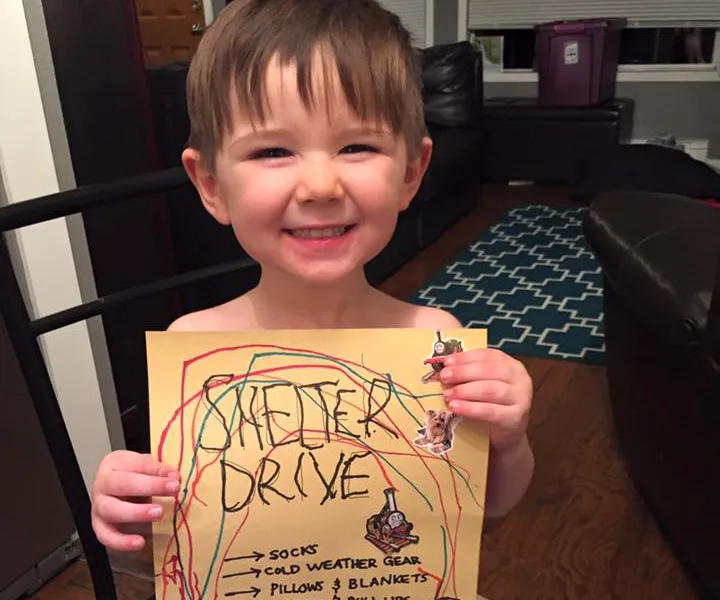 SHELTER
DRIVE
→ SOCKS
→ COLD WEATHER GEAR
→ PILLOWS & BLANKETS